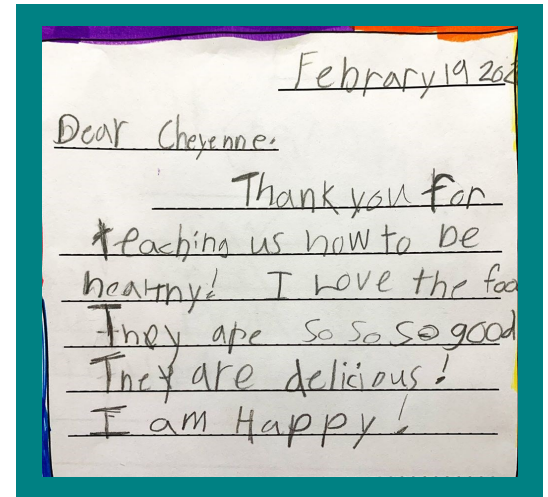 Febrary 19 202
Dear Cheyenne.
Thank you for
teaching us how to be
healthy! I Love the foo
They are so so so good
They are delicious!
I am Happy!